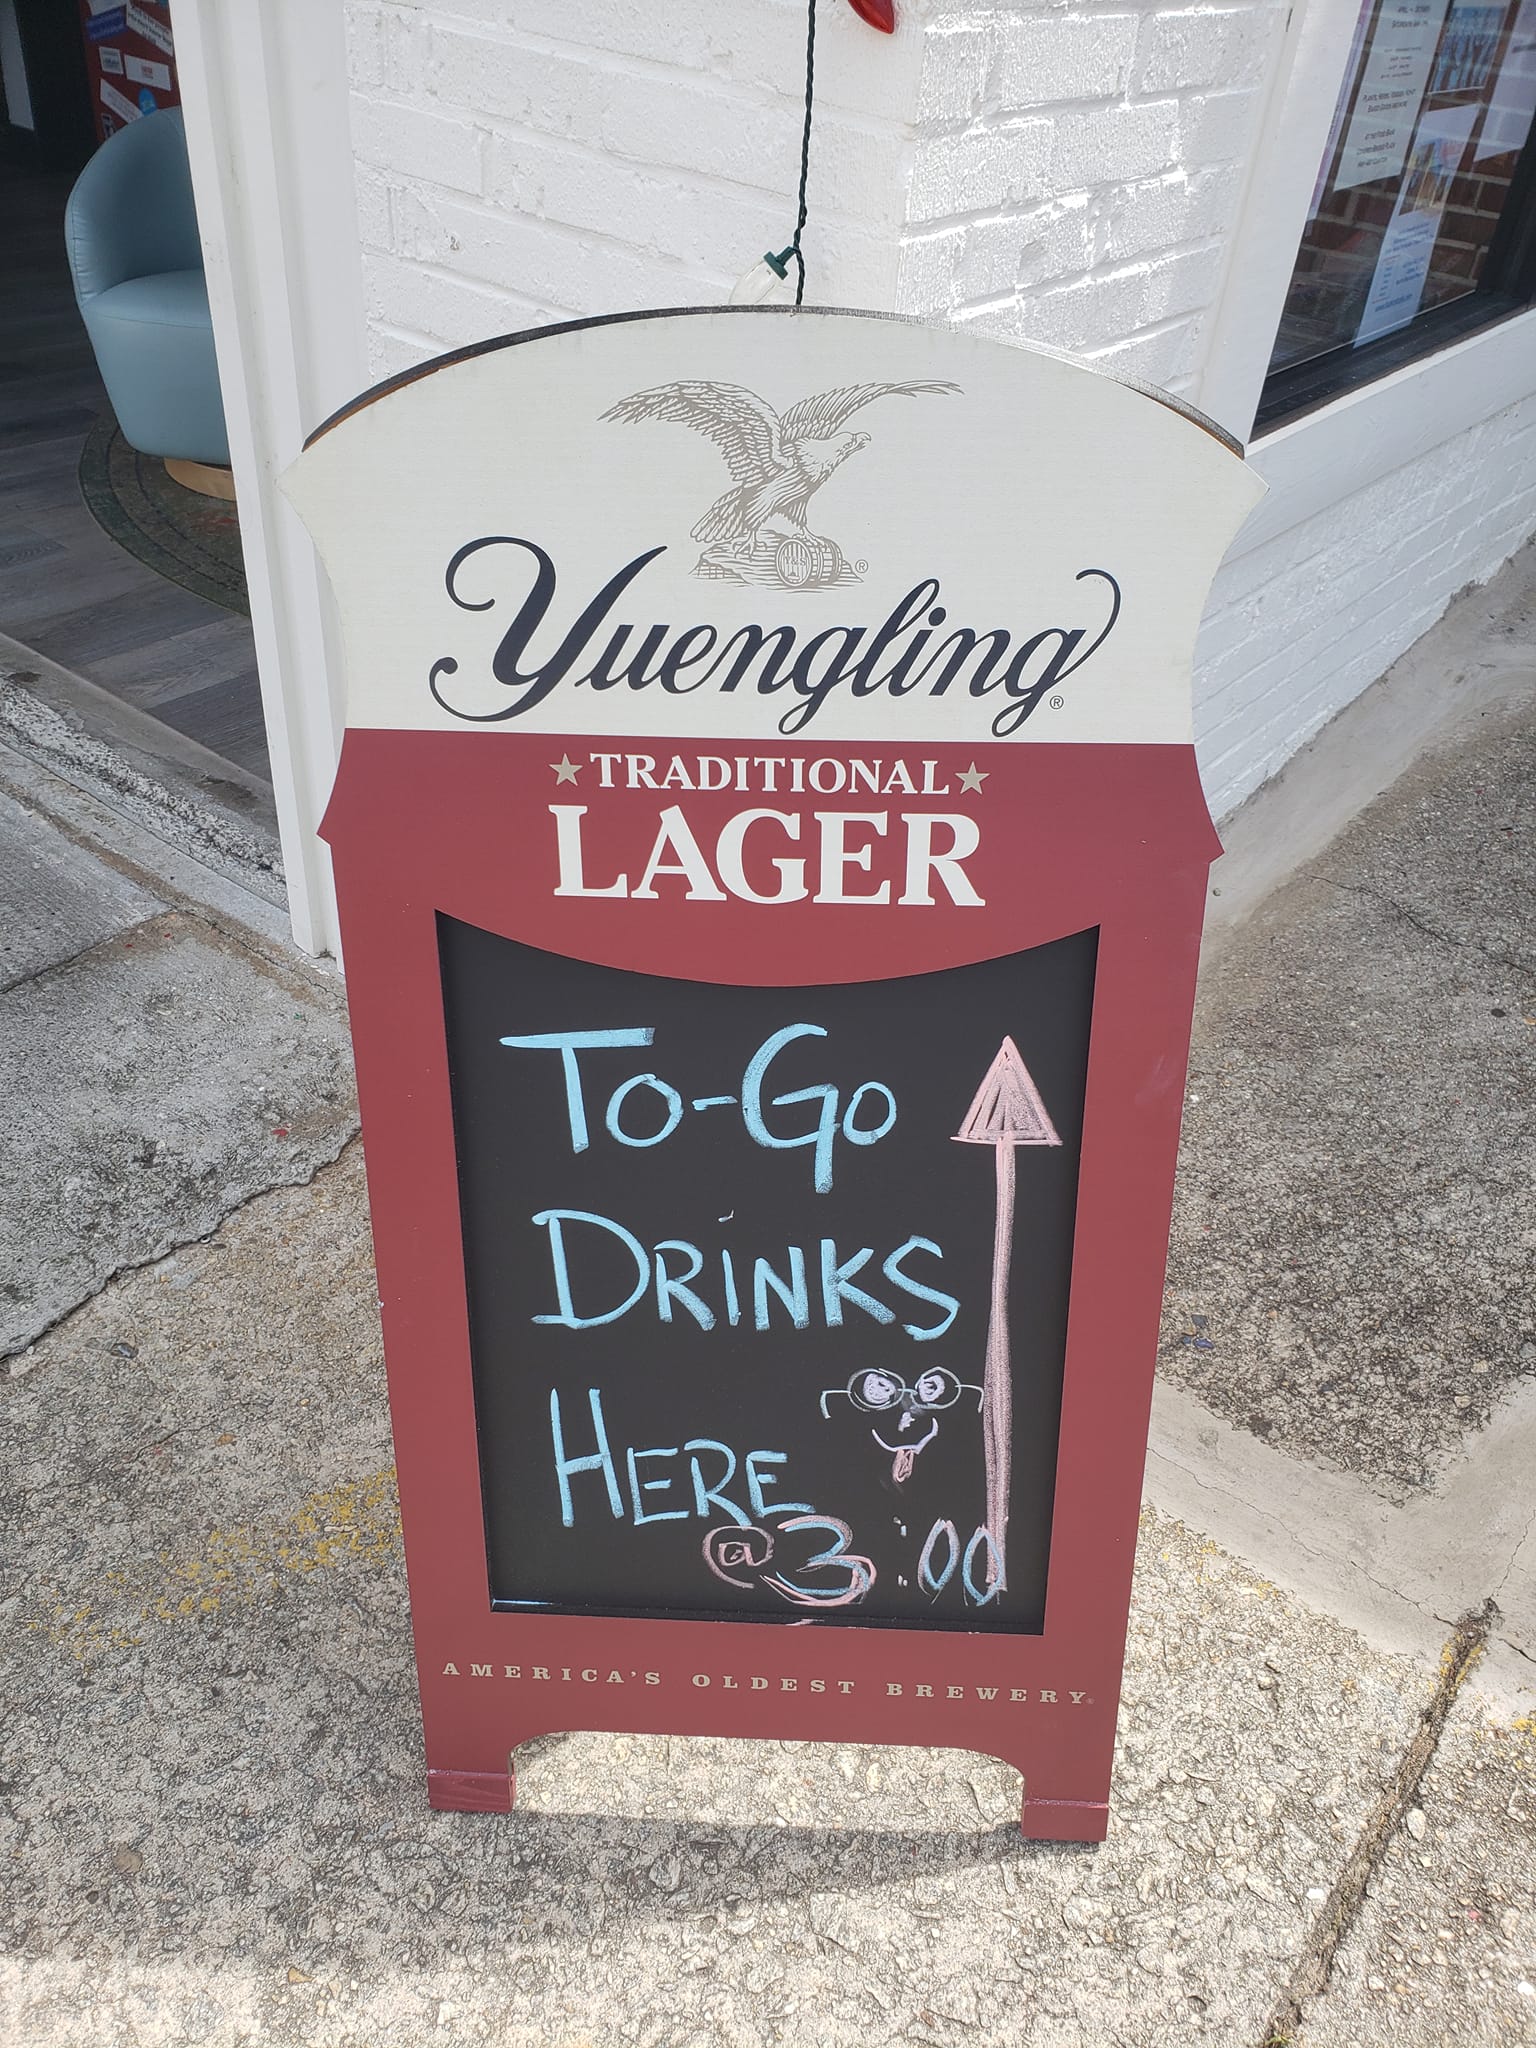 Yuengling®
★ TRADITIONAL ★
LAGER
TO-GO
DRINKS
HERE
@ 3:00
AMERICA'S OLDEST BREWERY®
Y&S
®